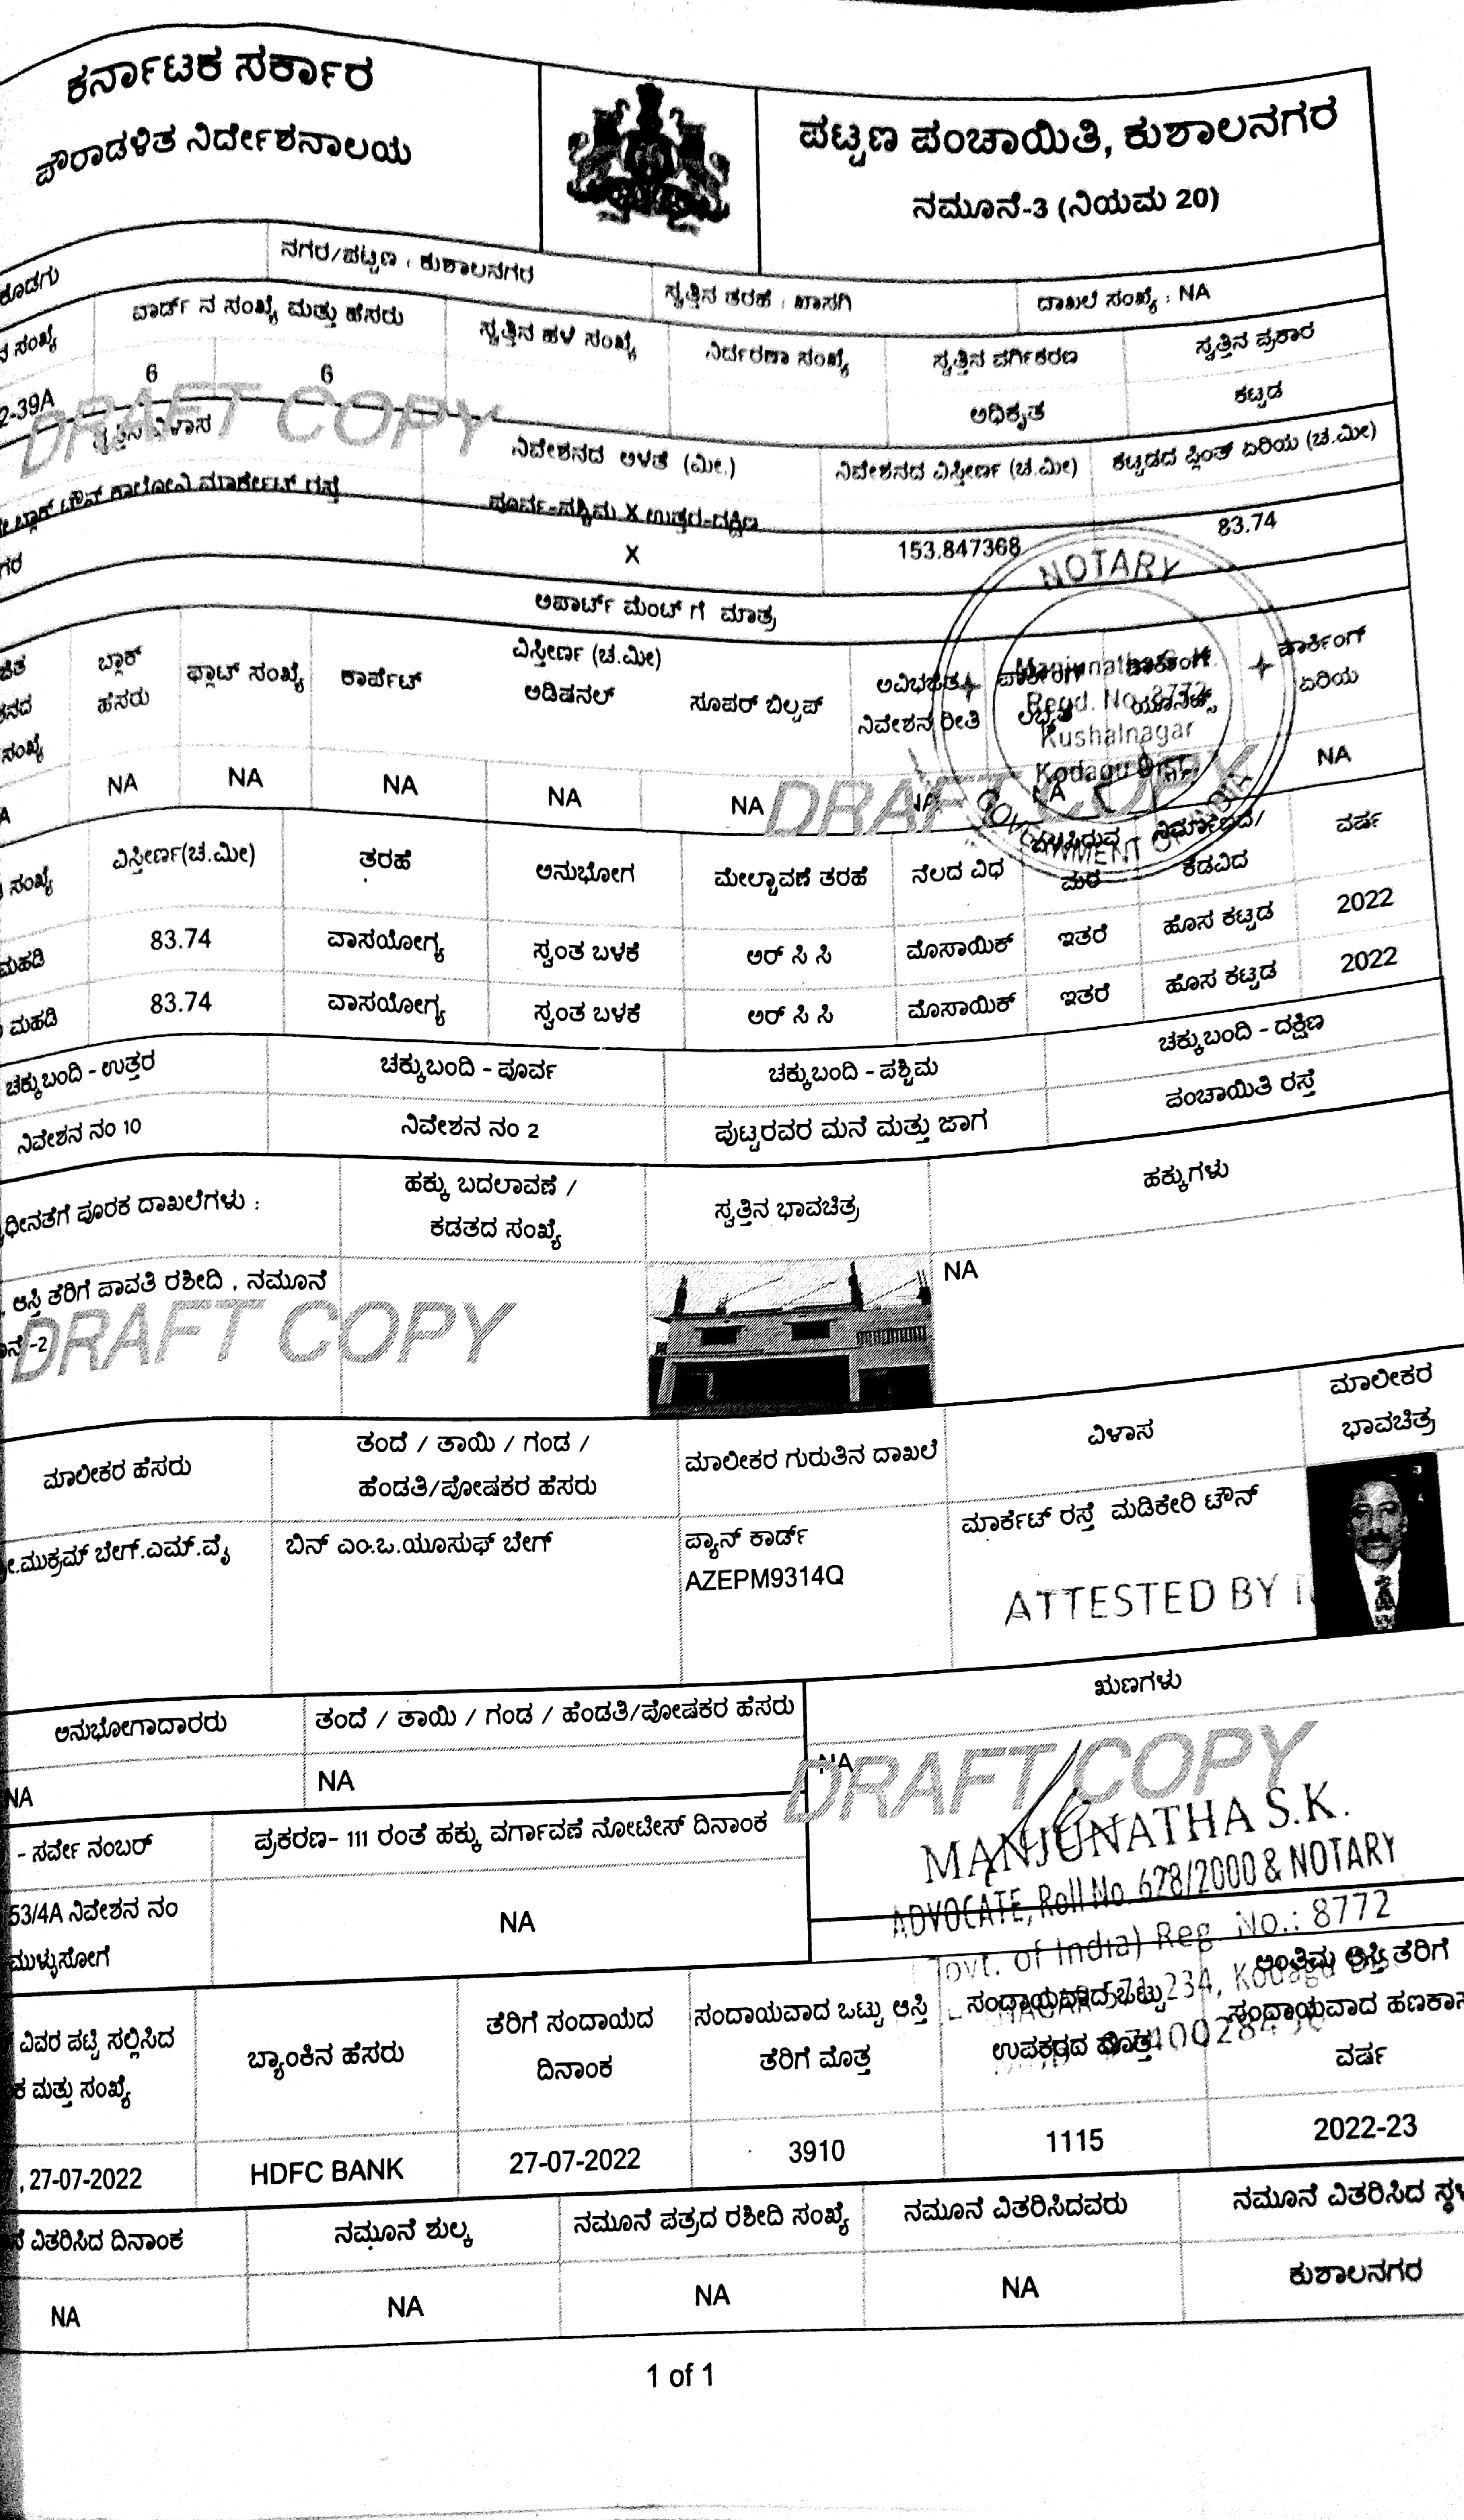 ಕರ್ನಾಟಕ ಸರ್ಕಾರ
ಪೌರಾಡಳಿತ ನಿರ್ದೇಶನಾಲಯ
ಪಟ್ಟಣ ಪಂಚಾಯಿತಿ, ಕುಶಾಲನಗರ
ನಮೂನೆ-3 (ನಿಯಮ 20)
ಕೊಡಗು
ನಗರ/ಪಟ್ಟಣ : ಕುಶಾಲನಗರ
ಸ್ವತ್ತಿನ ತರಹೆ : ಖಾಸಗಿ
ದಾಖಲೆ ಸಂಖ್ಯೆ : NA
ನ ಸಂಖ್ಯೆ
ವಾರ್ಡ್ ನ ಸಂಖ್ಯೆ ಮತ್ತು ಹೆಸರು
ಸ್ವತ್ತಿನ ಹಳೆ ಸಂಖ್ಯೆ
ನಿರ್ದರಣಾ ಸಂಖ್ಯೆ
ಸ್ವತ್ತಿನ ವರ್ಗೀಕರಣ
ಸ್ವತ್ತಿನ ಪ್ರಕಾರ
2-39A
6
6
ಅಧಿಕೃತ
ಕಟ್ಟಡ
DRAFT COPY
ನಿವೇಶನದ ಅಳತೆ (ಮೀ.)
ನಿವೇಶನದ ವಿಸ್ತೀರ್ಣ (ಚ.ಮೀ)
ಕಟ್ಟಡದ ಪ್ಲಿಂತ್ ಏರಿಯ (ಚ.ಮೀ)
ಬ್ಲಾಕ್ ಟೌನ್ ಕಾಲೋನಿ ಮಾರ್ಕೇಟ್ ರಸ್ತೆ
ಪೂರ್ವ-ಪಶ್ಚಿಮ X ಉತ್ತರ-ದಕ್ಷಿಣ
X
153.847368
83.74
NOTARY
ಅಪಾರ್ಟ್ ಮೆಂಟ್ ಗೆ ಮಾತ್ರ
ಬ್ಲಾಕ್
ಹೆಸರು
ಫ್ಲಾಟ್ ಸಂಖ್ಯೆ
ವಿಸ್ತೀರ್ಣ (ಚ.ಮೀ)
ಕಾರ್ಪೆಟ್
ಅಡಿಷನಲ್
ಸೂಪರ್ ಬಿಲ್ಟಪ್
ನಿವೇಶನ ರೀತಿ
ಪಾರ್ಕಿಂಗ್
ಏರಿಯ
Regd. No. 8772
Kushalnagar
Kodagu Dist.
ಸಂಖ್ಯೆ
NA
NA
NA
NA
NA
NA
NA
NA
DRAFT COPY
ಸಂಖ್ಯೆ
ವಿಸ್ತೀರ್ಣ(ಚ.ಮೀ)
ತರಹೆ
ಅನುಭೋಗ
ಮೇಲ್ಚಾವಣೆ ತರಹೆ
ನೆಲದ ವಿಧ
ಮರ
ಕೆಡವಿದ
ವರ್ಷ
ಮಹಡಿ
83.74
ವಾಸಯೋಗ್ಯ
ಸ್ವಂತ ಬಳಕೆ
ಆರ್ ಸಿ ಸಿ
ಮೊಸಾಯಿಕ್
ಇತರೆ
ಹೊಸ ಕಟ್ಟಡ
2022
ಮಹಡಿ
83.74
ವಾಸಯೋಗ್ಯ
ಸ್ವಂತ ಬಳಕೆ
ಆರ್ ಸಿ ಸಿ
ಮೊಸಾಯಿಕ್
ಇತರೆ
ಹೊಸ ಕಟ್ಟಡ
2022
ಚಕ್ಕುಬಂದಿ - ಉತ್ತರ
ಚಕ್ಕುಬಂದಿ - ಪೂರ್ವ
ಚಕ್ಕುಬಂದಿ - ಪಶ್ಚಿಮ
ಚಕ್ಕುಬಂದಿ - ದಕ್ಷಿಣ
ನಿವೇಶನ ನಂ 10
ನಿವೇಶನ ನಂ 2
ಪುಟ್ಟರವರ ಮನೆ ಮತ್ತು ಜಾಗ
ಪಂಚಾಯಿತಿ ರಸ್ತೆ
ಧೀನತೆಗೆ ಪೂರಕ ದಾಖಲೆಗಳು :
ಹಕ್ಕು ಬದಲಾವಣೆ /
ಕಡತದ ಸಂಖ್ಯೆ
ಸ್ವತ್ತಿನ ಭಾವಚಿತ್ರ
ಹಕ್ಕುಗಳು
ಆಸ್ತಿ ತೆರಿಗೆ ಪಾವತಿ ರಶೀದಿ , ನಮೂನೆ
-2
NA
DRAFT COPY
ಮಾಲೀಕರ ಹೆಸರು
ತಂದೆ / ತಾಯಿ / ಗಂಡ /
ಹೆಂಡತಿ/ಪೋಷಕರ ಹೆಸರು
ಮಾಲೀಕರ ಗುರುತಿನ ದಾಖಲೆ
ವಿಳಾಸ
ಮಾಲೀಕರ
ಭಾವಚಿತ್ರ
ಮುಕ್ರಮ್ ಬೇಗ್.ಎಮ್.ವೈ
ಬಿನ್ ಎಂ.ಒ.ಯೂಸುಫ್ ಬೇಗ್
ಪ್ಯಾನ್ ಕಾರ್ಡ್
AZEPM9314Q
ಮಾರ್ಕೆಟ್ ರಸ್ತೆ ಮಡಿಕೇರಿ ಟೌನ್
ATTESTED BY
ಅನುಭೋಗಾದಾರರು
ತಂದೆ / ತಾಯಿ / ಗಂಡ / ಹೆಂಡತಿ/ಪೋಷಕರ ಹೆಸರು
ಋಣಗಳು
NA
NA
NA
DRAFT COPY
MANJUNATHA S.K.
ADVOCATE, Roll No. 628/2000 & NOTARY
Govt. of India) Reg. No.: 8772
- ಸರ್ವೇ ನಂಬರ್
ಪ್ರಕರಣ- 111 ರಂತೆ ಹಕ್ಕು ವರ್ಗಾವಣೆ ನೋಟೀಸ್ ದಿನಾಂಕ
53/4A ನಿವೇಶನ ನಂ
ಮುಳ್ಳುಸೋಗೆ
NA
ವಿವರ ಪಟ್ಟಿ ಸಲ್ಲಿಸಿದ
ಮತ್ತು ಸಂಖ್ಯೆ
ಬ್ಯಾಂಕಿನ ಹೆಸರು
ತೆರಿಗೆ ಸಂದಾಯದ
ದಿನಾಂಕ
ಸಂದಾಯವಾದ ಒಟ್ಟು ಆಸ್ತಿ
ತೆರಿಗೆ ಮೊತ್ತ
ಸಂದಾಯವಾದ ಒಟ್ಟು
ಉಪಕರದ ಮೊತ್ತ
ಅಂತಿಮ ಆಸ್ತಿ ತೆರಿಗೆ
ಸಂದಾಯವಾದ
ವರ್ಷ
, 27-07-2022
HDFC BANK
27-07-2022
3910
1115
2022-23
ವಿತರಿಸಿದ ದಿನಾಂಕ
ನಮೂನೆ ಶುಲ್ಕ
ನಮೂನೆ ಪತ್ರದ ರಶೀದಿ ಸಂಖ್ಯೆ
ನಮೂನೆ ವಿತರಿಸಿದವರು
ನಮೂನೆ ವಿತರಿಸಿದ
NA
NA
NA
NA
ಕುಶಾಲನಗರ
1 of 1